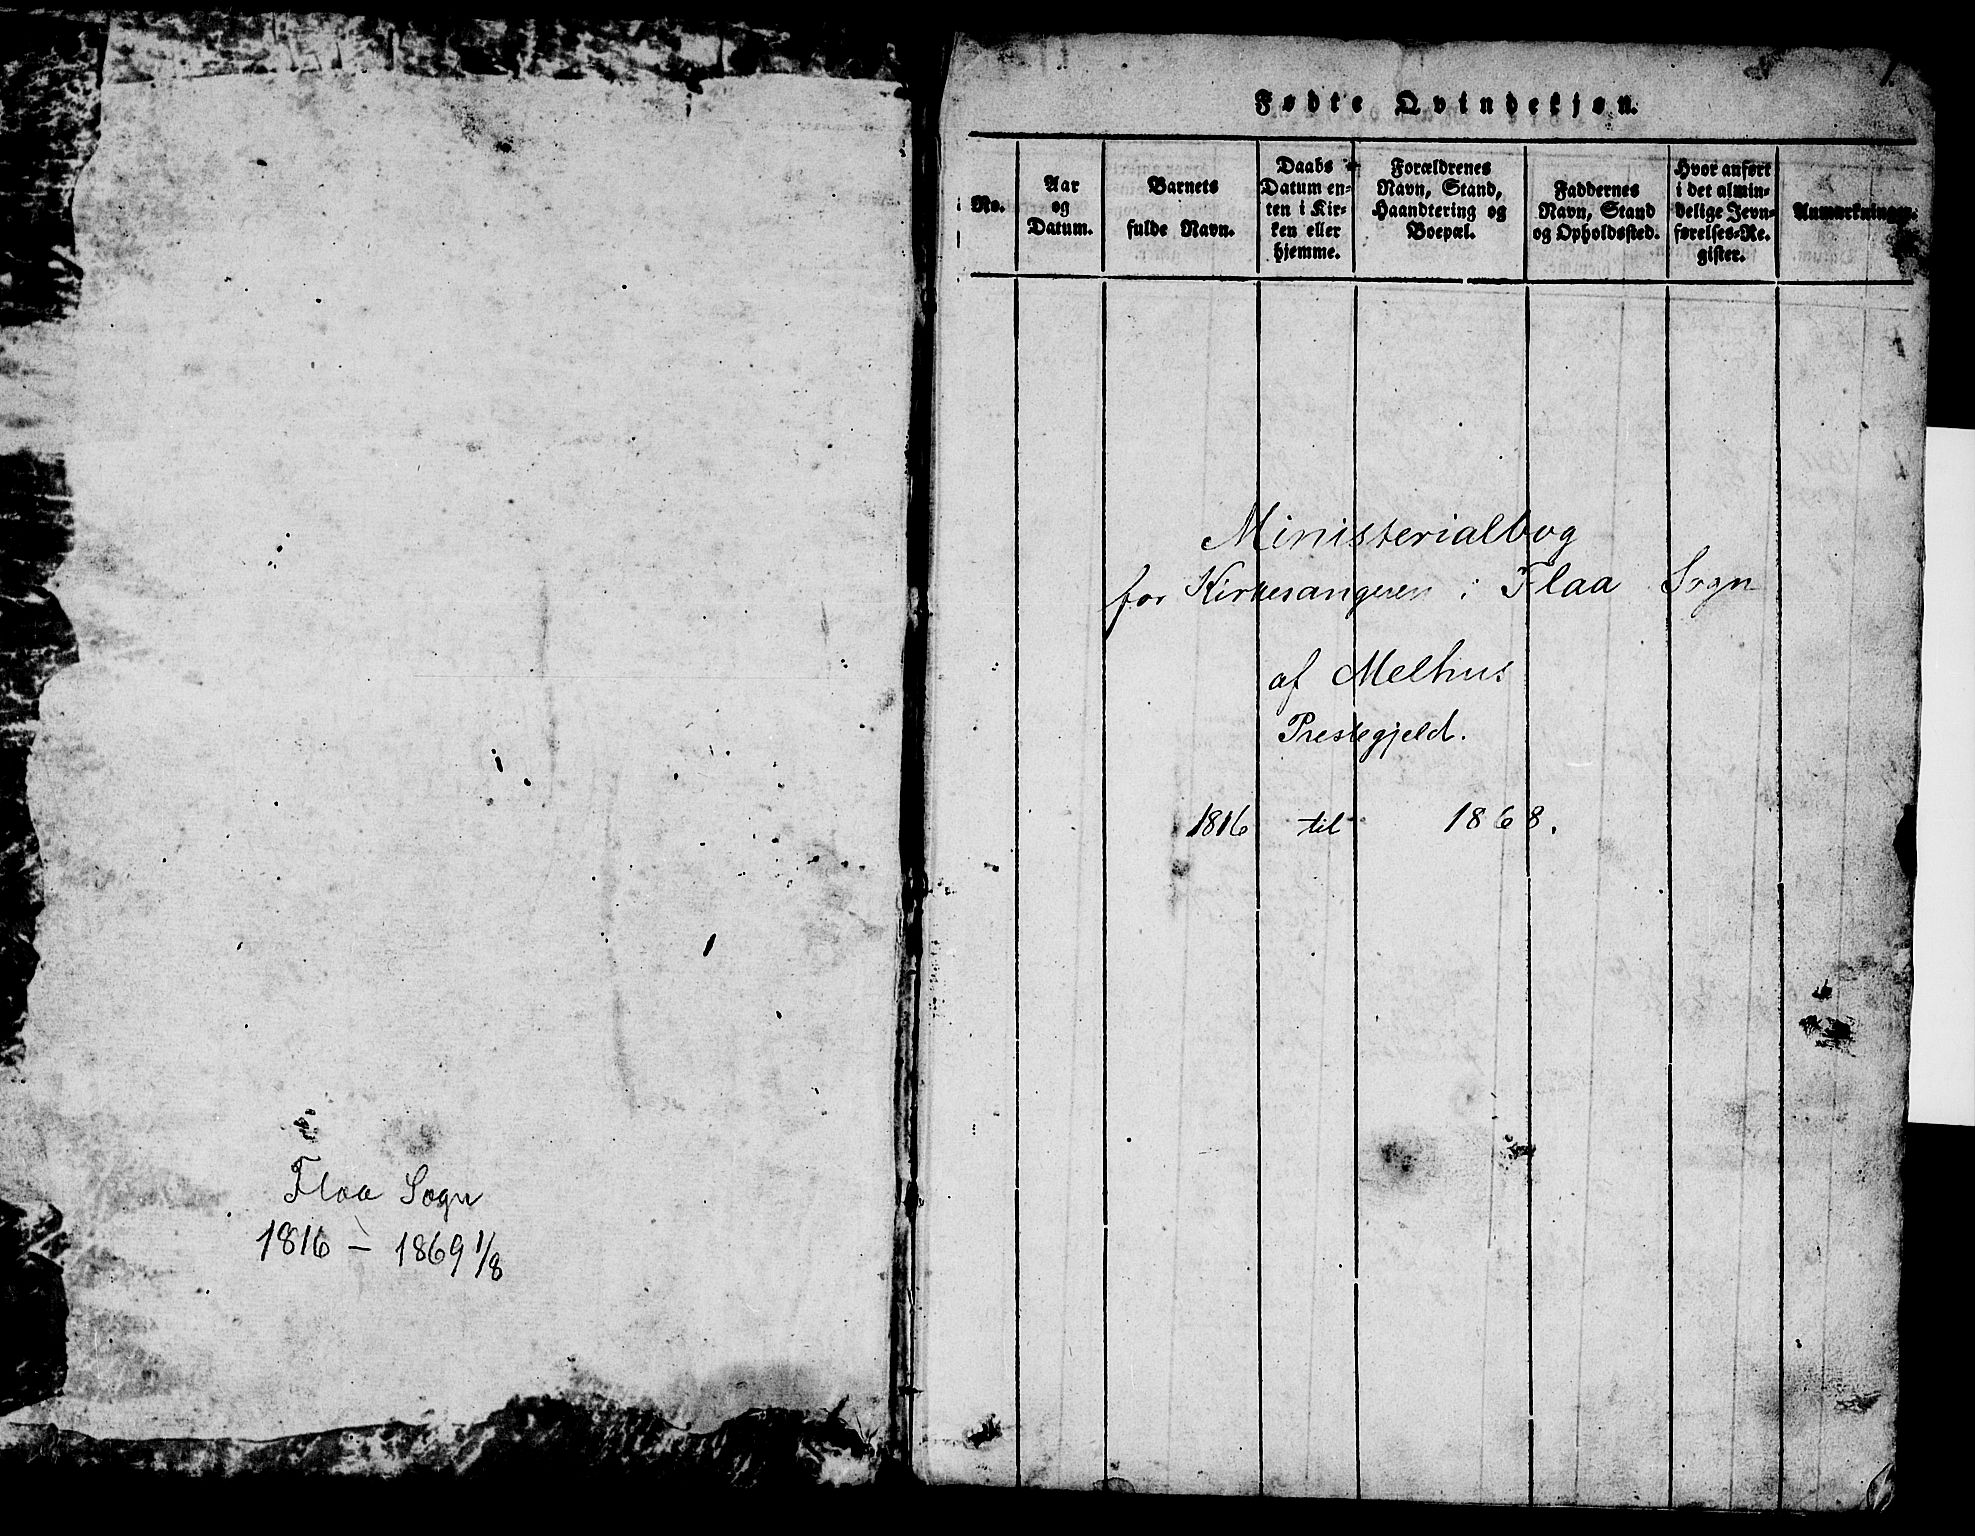 Flaa Sogn
1816 – 1869 1/8
1.
Fødte Qvindekjøn.
No.
Aar
og
Datum.
Barnets
fulde Navn.
Daabs
Datum en-
ten i Kir-
ken eller
hjemme.
Forældrenes
Navn, Stand,
Haandtering og
Boepæl.
Faddernes
Navn, Stand
og Opholdssted.
Hvor anført
i det almin-
delige Jevn-
førelses-Re-
gister.
Anmærkninger.
Ministerialbog
for Kirkesangeren i Flaa Sogn
af Melhus
Prestegjeld.
1816 til 1868.